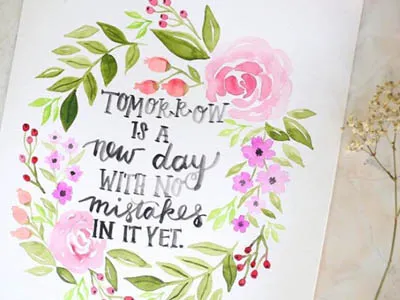 TOMORROW
IS A
new day
WITH NO
mistakes
IN IT YET.